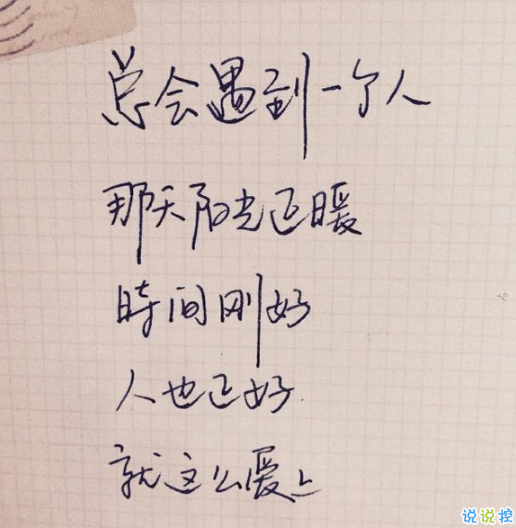 总会遇到一个人
那天阳光正暖
時间刚好
人也正好
就这么爱上
说说控